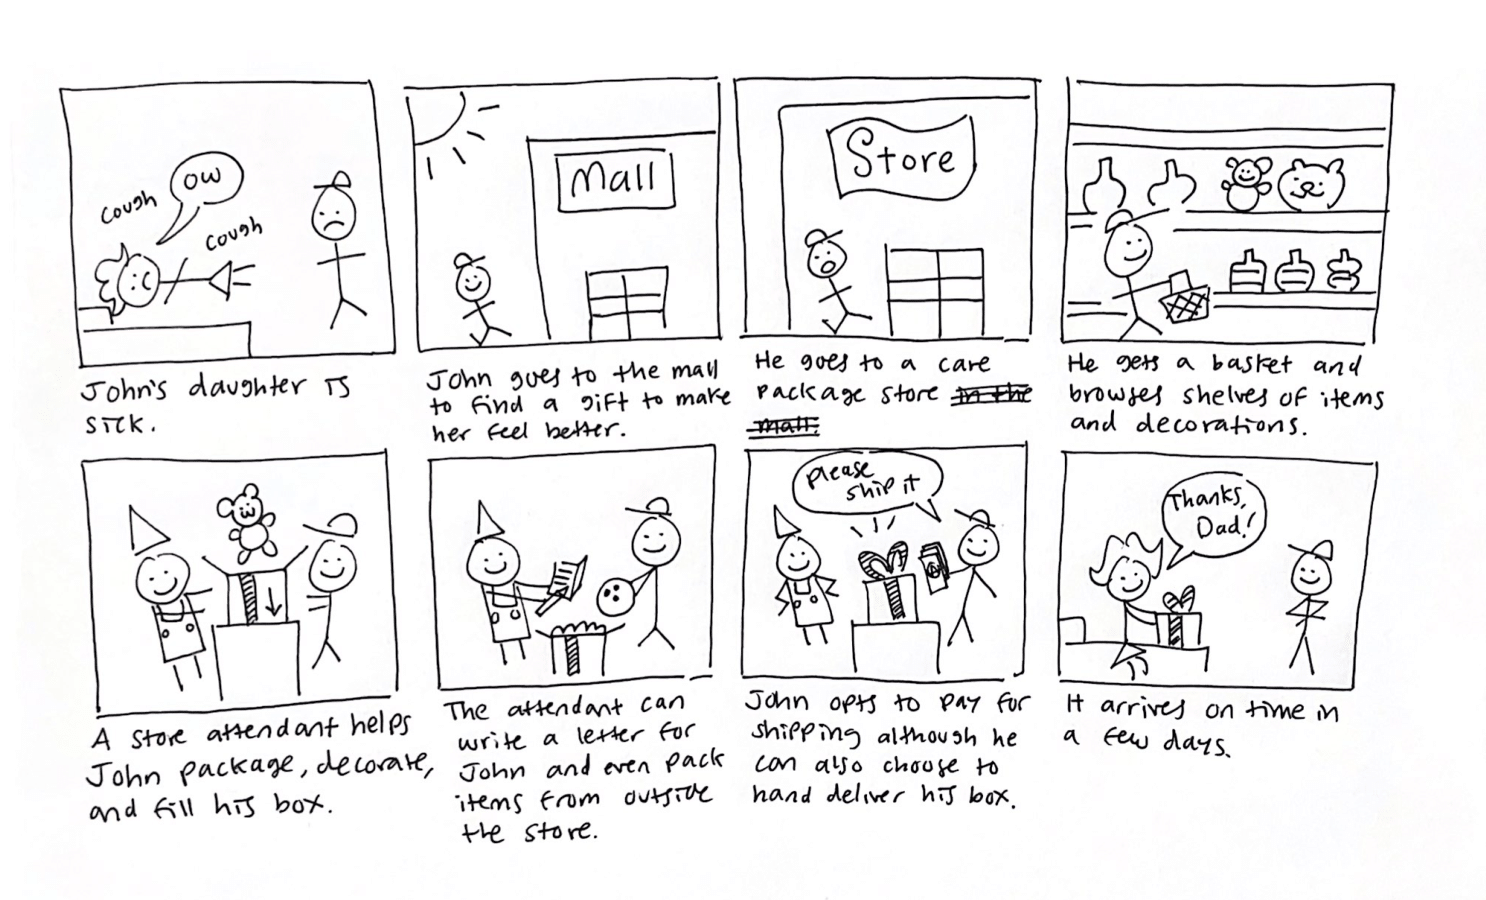 cough
ow
cough
John's daughter is
sick.
Mall
John goes to the mall
to find a gift to make
her feel better.
Store
He goes to a care
package store in the
mall.
He gets a basket and
browses shelves of items
and decorations.
A store attendant helps
John package, decorate,
and fill his box.
The attendant can
write a letter for
John and even pack
items from outside
the store.
please
ship it
John opts to pay for
shipping although he
can also choose to
hand deliver his box.
Thanks,
Dad!
It arrives on time in
a few days.